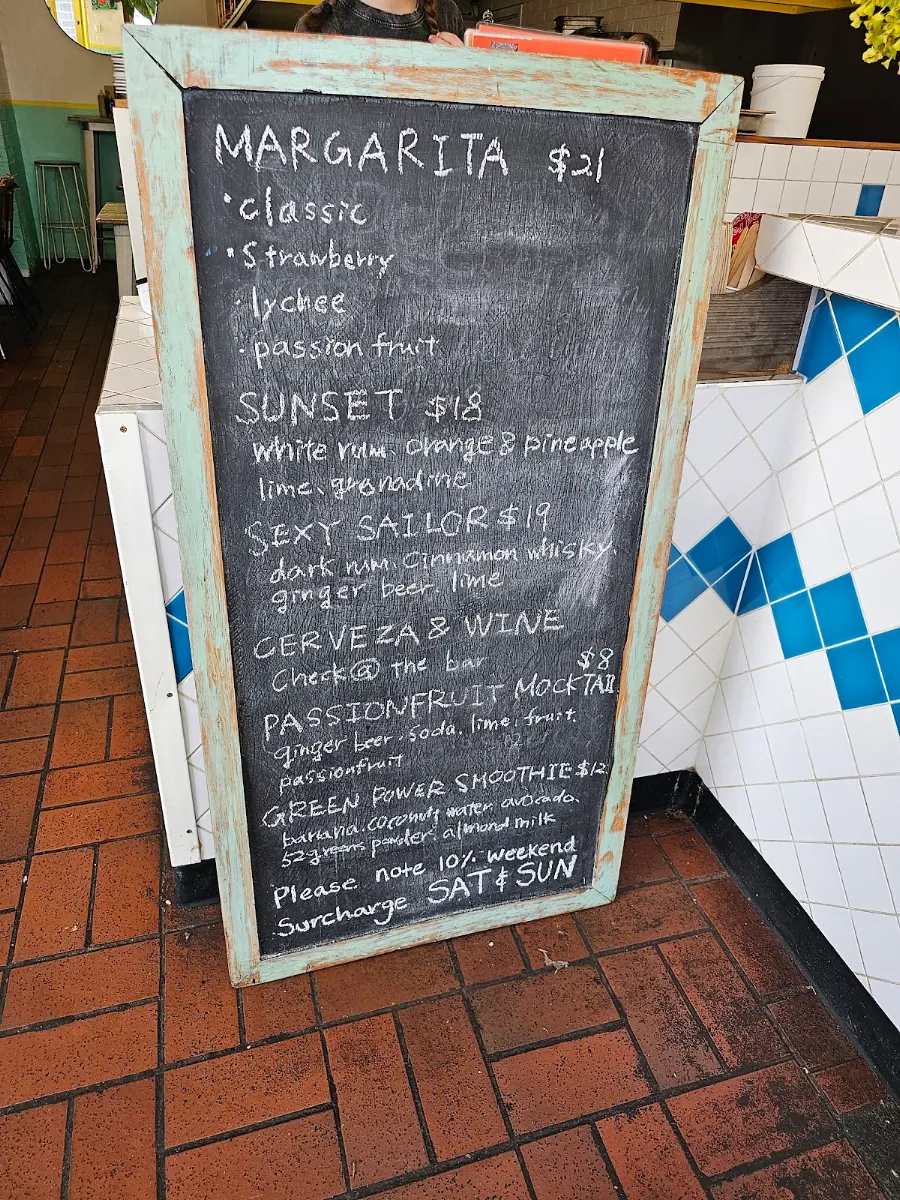 MARGARITA $21
· classic
· Strawberry
· lychee
· passion fruit
SUNSET $18
white rum, orange & pineapple
lime, grenadine
SEXY SAILOR $19
dark rum, cinnamon whisky,
ginger beer, lime
CERVEZA & WINE
Check @ the bar
$8
PASSIONFRUIT MOCKTAIL
ginger beer, soda, lime, fruit,
passionfruit
GREEN POWER SMOOTHIE $12
banana, coconut water, avocado,
52 greens powder, almond milk
Please note 10% weekend
Surcharge SAT & SUN